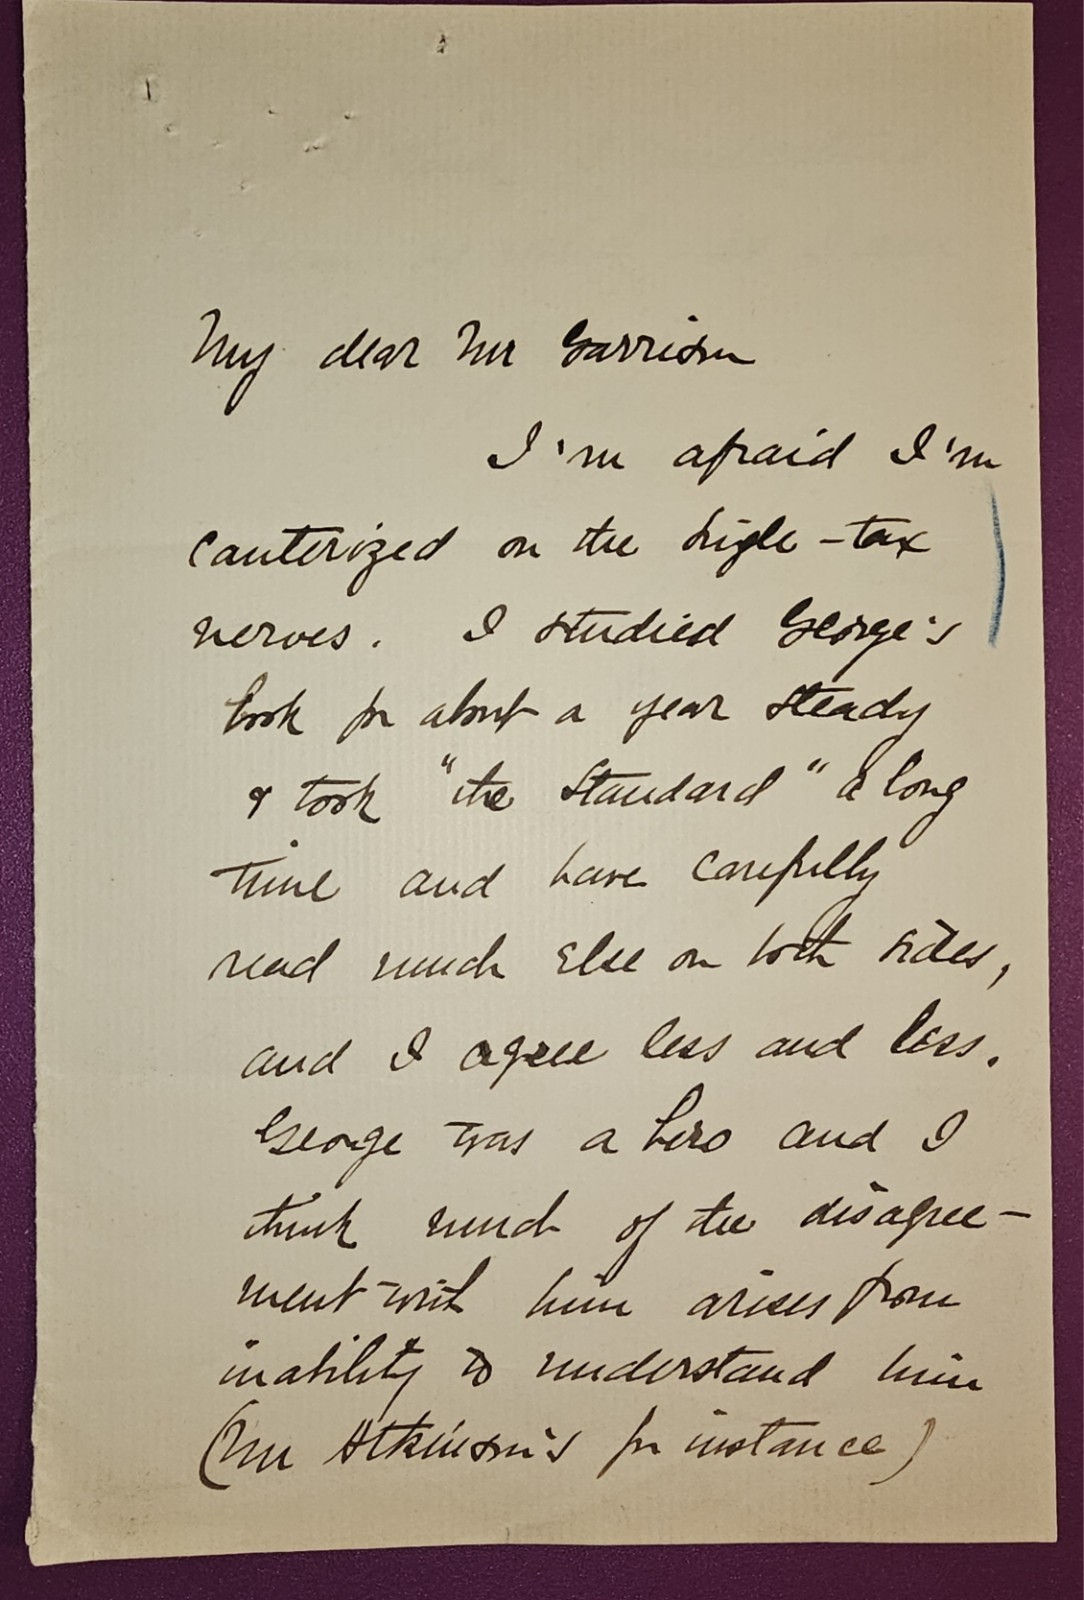 My dear Mr Garrison
I'm afraid I'm
cauterized on the single-tax
nerves. I studied George's
book for about a year steady
& took "the Standard" a long
time and have carefully
read much else on both sides,
and I agree less and less.
George was a hero and I
think much of the disagree-
ment with him arises from
inability to understand him
(Mr Atkinson's for instance)